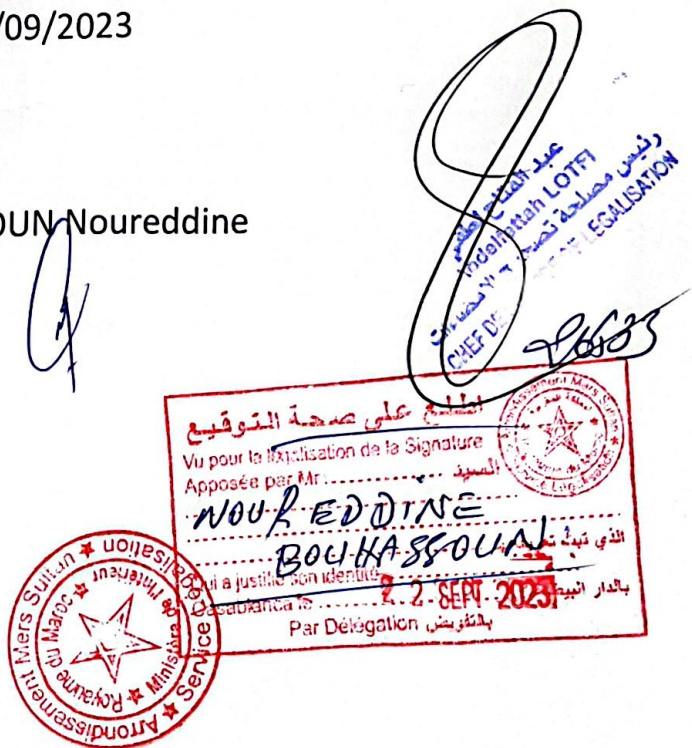 /09/2023
OUN Noureddine
عبد الفتاح لطفي
Abdelfattah LOTFI
رئيس مصلحة تصحيح الامضاءات
CHEF DE
DE LEGALISATION
اطلع على صحة التوقيع
Vu pour la légalisation de la Signature
Apposée par Mr:
السيد
NOUREDDINE
BOUHASSOUN
الذي ثبتت
Qui a justifié son identité
Casablanca le
22 SEPT 2023
بالدار البيضاء
Par Délégation بالتفويض
Arrondissement Mers Sultan
Service Légalisation
Royaume du Maroc
Ministère de l'Intérieur
Arrondissement Mers Sultan